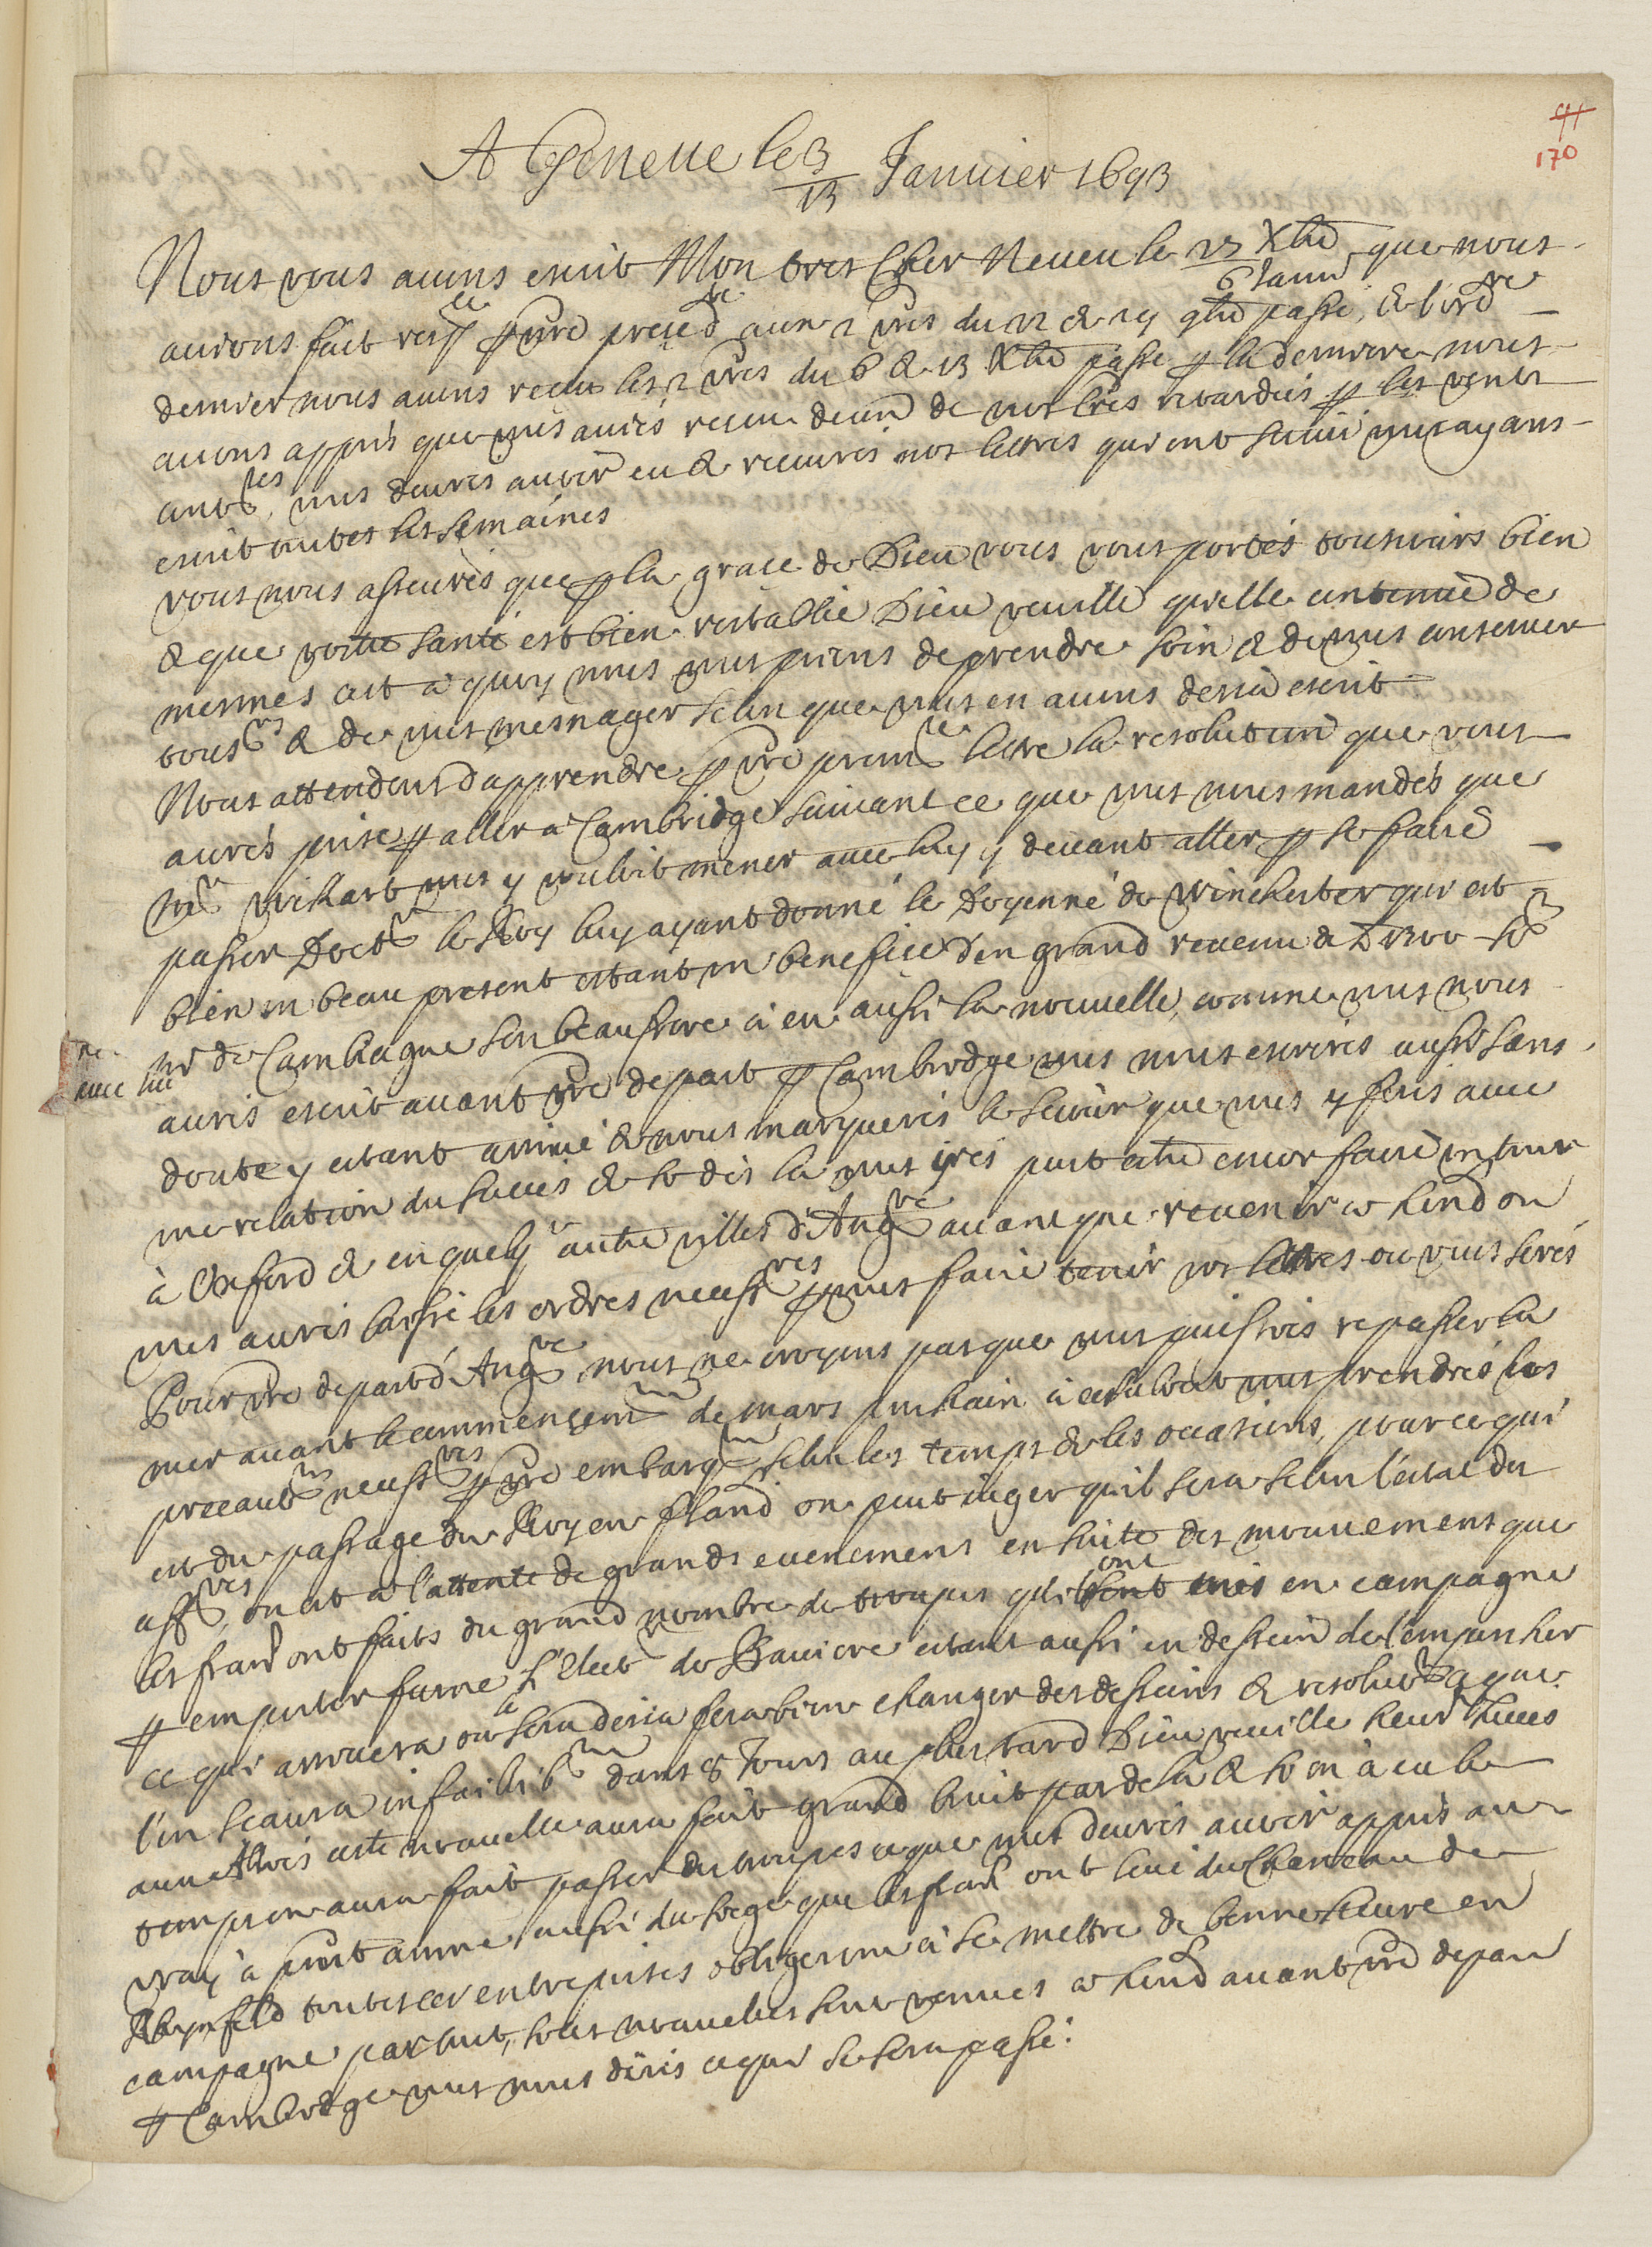 91
170
A Geneue le 3/13 Januier 1693
Nous vous auons escrit Mon tres Cher Neueu le 27 Xbre / 6 Januer que nous
aurions fait resp ce p vre preced te auec 2 vres du 22 & 29 9bre passé, & l'ord re
dernier nous auons receu les 2 vres du 6 & 13 Xbre passé p la derniere nous
auons appris que vous auiés receu deux de nos lres retardées p les vents
contr res, vous deurés auoir eu & receurés nos lettres qui ont suiui vous ayans
escrit toutes les semaines
vous nous asseurés que p la grace de Dieu vous vous portés tousiours bien
& que vostre santé est bien restablie Dieu veuille qu'elle continue de
mesmes c'est à quoy nous vous prions de prendre soin & de vous conseruer
tous rs & de vous mesnager selon que vous en auons desia escrit
Nous attendons d'apprendre p vre prem re lettre la resolution que vous
aurés prise p aller a Cambridge suiuant ce que vous nous mandés que
Mr Wickart vous y vouloit mener auec luy y deuant aller p se faire
passer Doct r le Roy luy ayant donné le Doyenné de Winchester qui est
bien un beau present estant un benefice d'un grand reuenu de
mr de Cambiague son beaufrere à eu aussi la nouuelle, comme vous nous
auec luy
aurés escrit auant vre depart p Cambridge vous nous escrirés aussi sans
doute y estant arriué & nous marquerés le seiour que vous y ferés auec
une relation du succés & si dés la vous irés peut estre encor faire un tour
à Oxford & en quelq autre villes d'Ang re auant que reuenir a London
vous aurés laissé les ordres necess res p vous faire tenir vos lettres ou vous serés
Pour vre depart d'Ang re nous ne croyons pas que vous puissiés repasser la
mer auant le commencem nt de mars prochain à cela vous prendrés les
precaut ns necess res p vre embarq nt selon les temps & les occasions, pour ce qui
est du passage du Roy en Fland on peut iuger qu'il sera selon l'estat des
aff res, on est à l'attente de grands euenemens en suite des mouuemens que
les franc ont faits du grand nombre de troupes qu'ils ont mis en campagne
p emporter furne L'Elect r de Bauiere estant aussi en dessein de l'empescher
ce qui arriuera ou sera desia fera bien changer des desseins & resolut ns que
l'on sceaura infailib nt dans 8 Jours au plus tard Dieu veuille heur succés
aux Alliés cette nouuelle aura fait grand bruit par dela & si on à eu le
temps on aura fait passer des troupes ce que vous deurés auoir appris au
vray à point arriué aussi du siege que les franc ont leué du Chasteau de
Rhynfeld toutes ces entreprises obligeront à se mettre de bonne heure en
campagne par tout, si les nouuelles sont venues a Lond auant vre depart
p Cambridge vous nous dirés ce qui se sera passé.